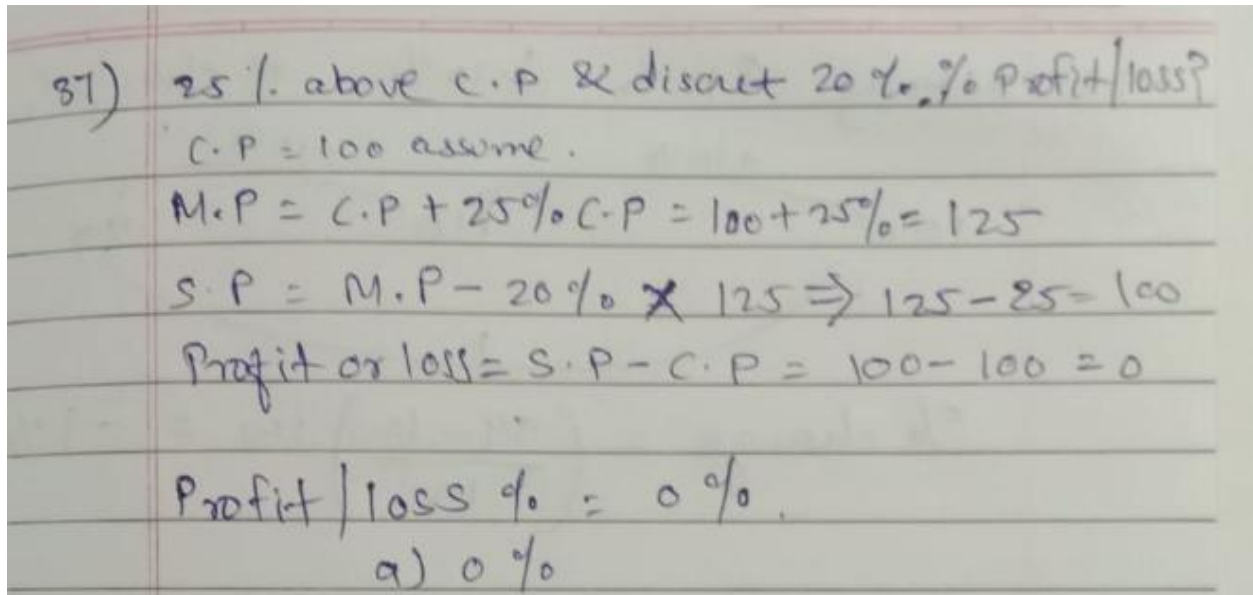 37) 25 %. above C.P & discut 20 %. % Profit/loss?
C.P = 100 assume.
M.P = C.P + 25% C.P = 100 + 25% = 125
S.P = M.P - 20% X 125 ⇒ 125 - 25 = 100
Profit or loss = S.P - C.P = 100 - 100 = 0
Profit | loss % = 0 %.
a) 0 %